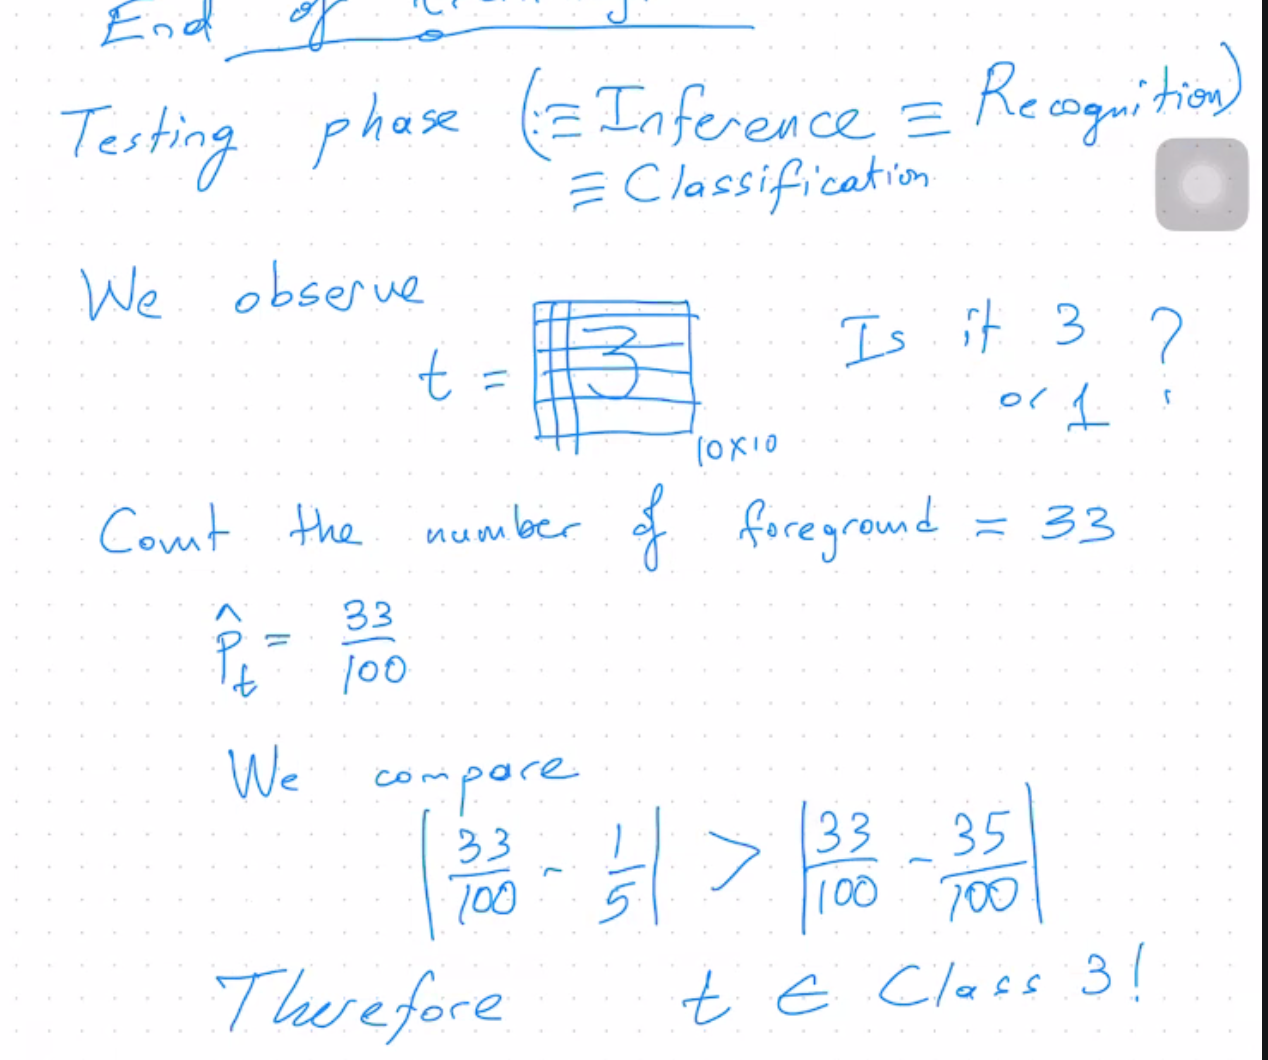 End of
Testing phase (:≡ Inference ≡ Recognition)
≡ Classification
We observe
t = 3
10×10
Is it 3 ?
or 1
Count the number of foreground = 33
p̂_t = 33/100
We compare
|33/100 - 1/5| > |33/100 - 35/100|
Therefore t ∈ Class 3!